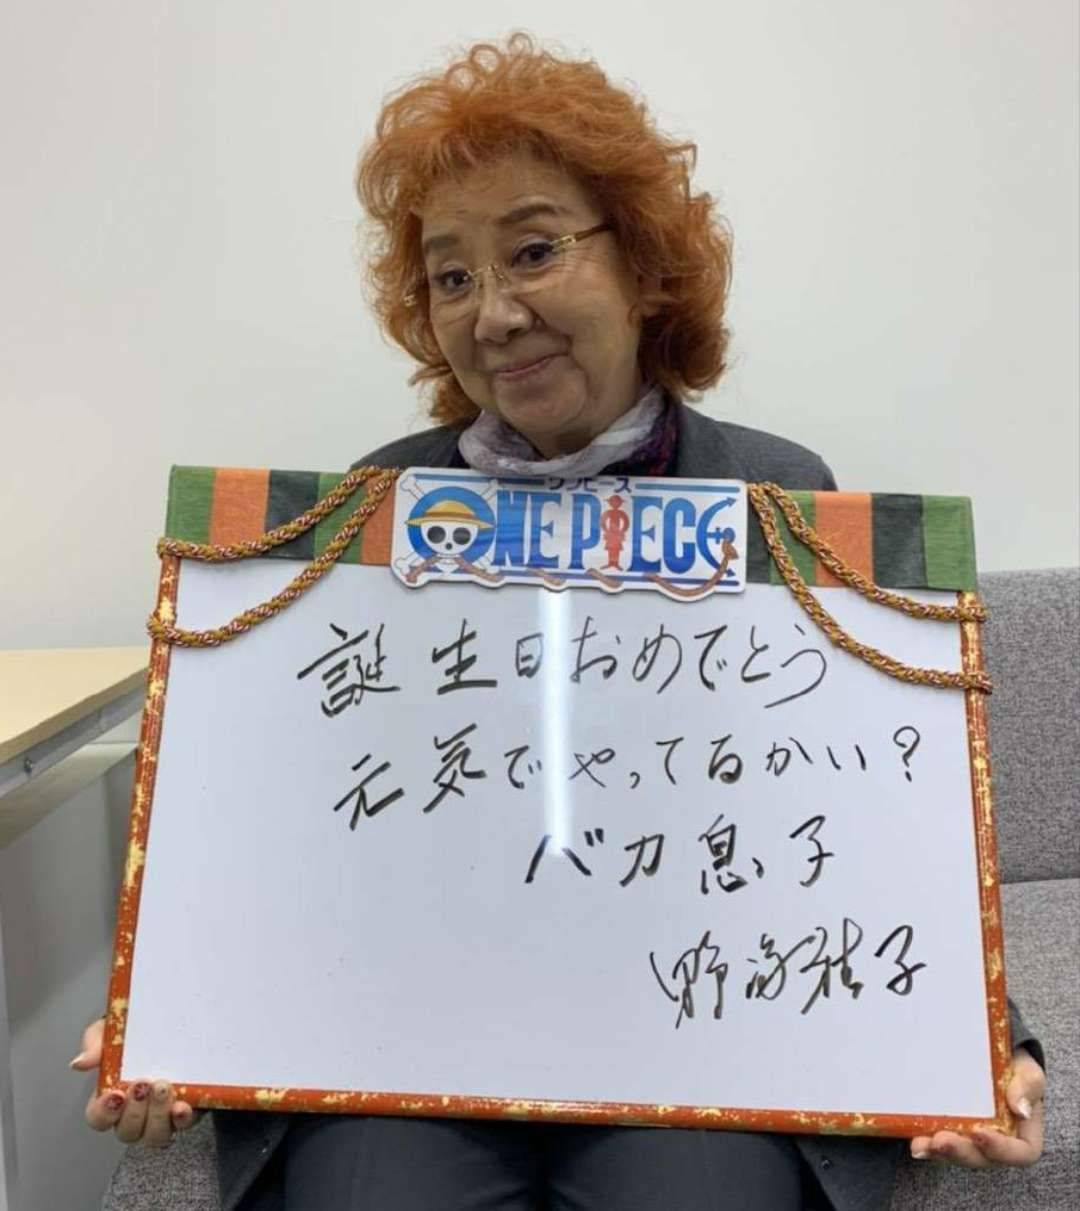 ワンピース
ONE PIECE
誕生日おめでとう
元気でやってるかい？
バカ息子
野沢雅子